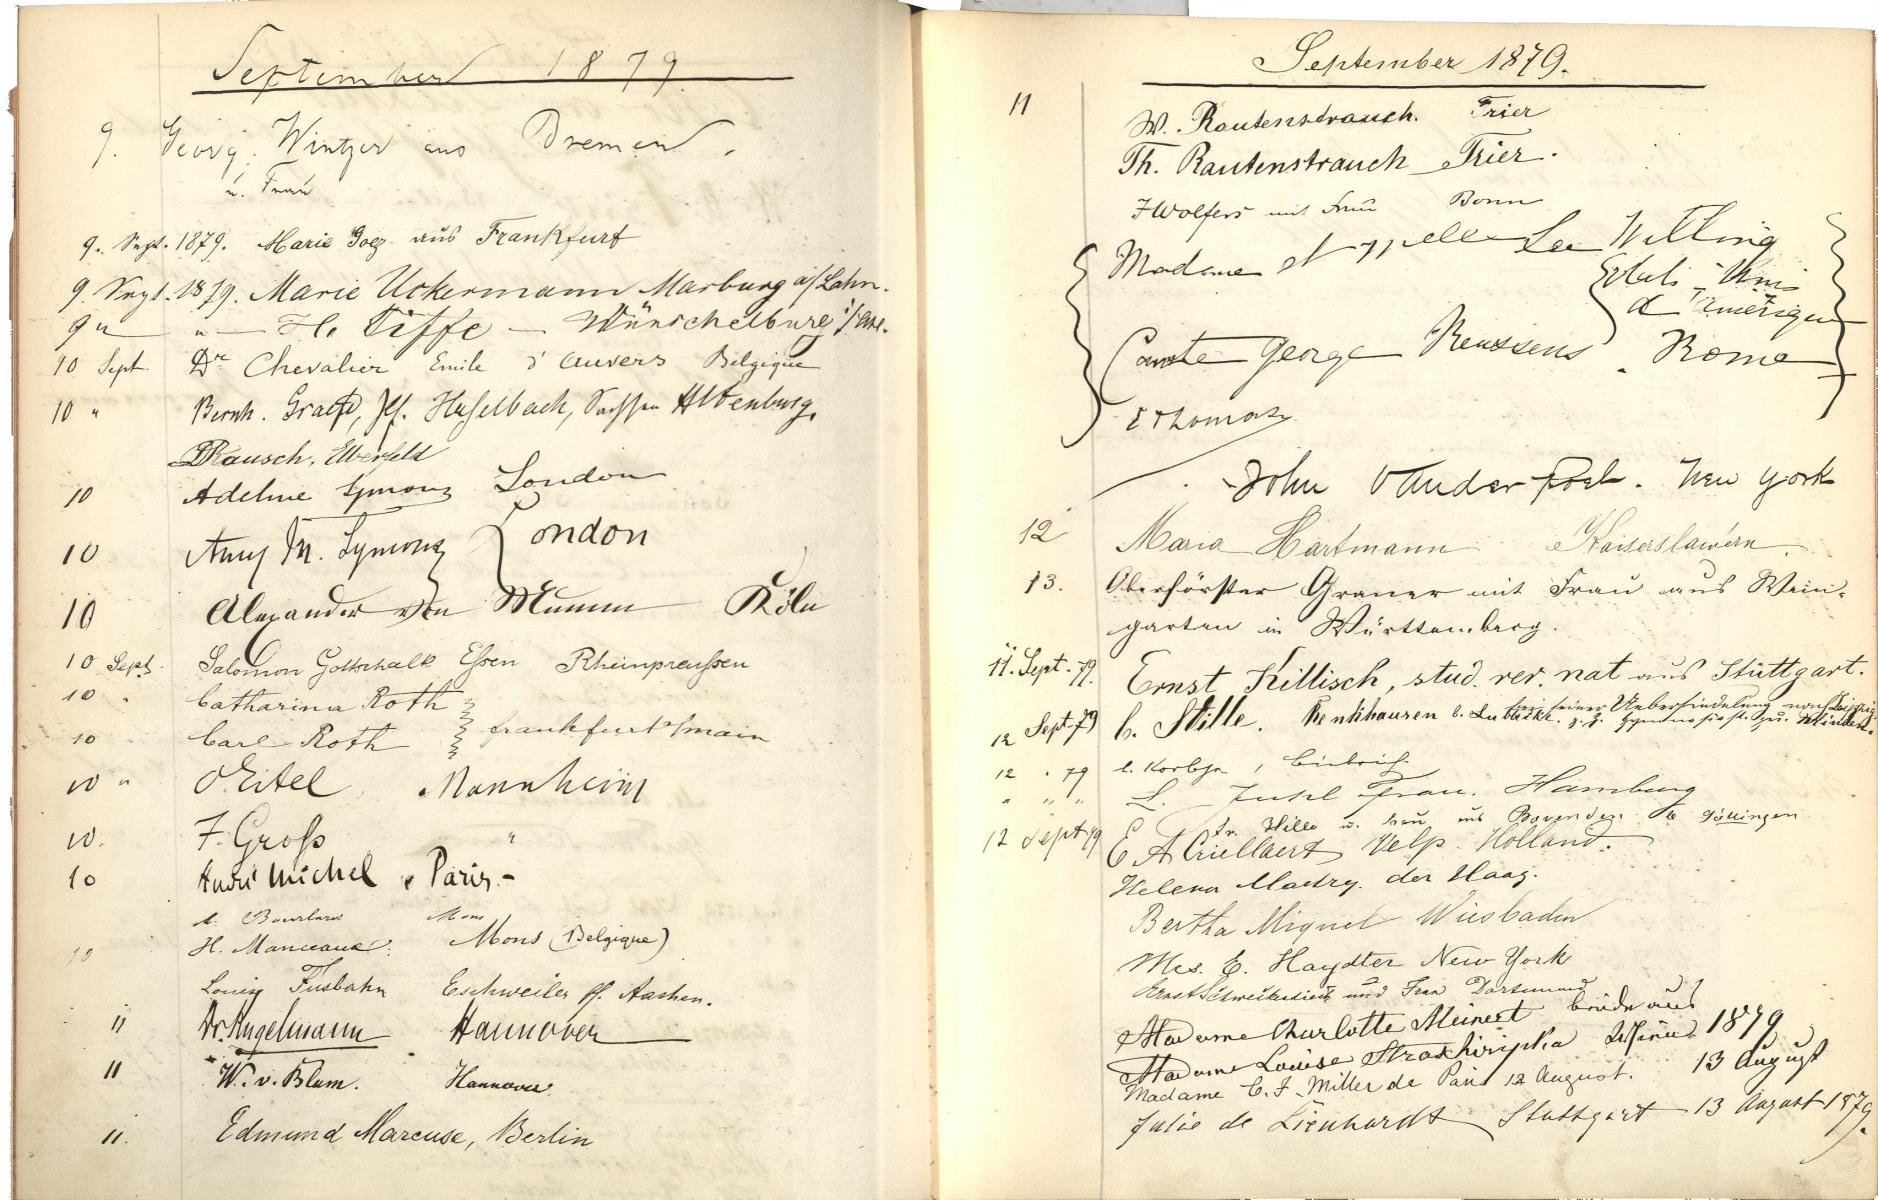 September 1879.
9. Georg Wintzer aus Bremen.
u. Frau
9. Sept. 1879. Marie Goez aus Frankfurt
9. Sept. 1879. Marie Uckermann Marburg a/Lahn.
9 " " H. Tiffe — Wünschelburg
10 Sept. Dr Chevalier Emile d'anvers Belgique
10 " Bernh. Graefe, Hasselbach, Sachsen Altenburg.
Rausch, Elberfeld
10 Adeline Symons London
10 Amy M. Symons London
10 Alexander von Mumm Köln
10 Sept. Salomon Gottschalk Essen Rheinpreussen
10 " Catharina Roth
10 Carl Roth frankfurt a/main
10 " O. Eitel Mannheim
10. F. Gross "
10 André Michel Paris.-
Mons
10 H. Manceaux. Mons (Belgique)
Louis Fusbahn Eschweiler Aachen.
11 Dr. Kugelmann Hannover
11 W. v. Blum. Hannover.
11. Edmund Marcuse, Berlin
September 1879.
11 W. Rautenstrauch. Trier
Th. Rautenstrauch Trier.
Wolfers mit Frau Bonn
Madame et Willing
Etats-Unis
d'Amérique
Comte George Reussens. Rome
E Thomas
John Vanderpoel. New York
12 Maria Hartmann Kaiserslautern.
13. Oberförster Graner mit Frau aus Wein-
garten in Württemberg.
11. Sept. 79. Ernst Killisch, stud. rer. nat aus Stuttgart.
12 Sept 79 C. Stille. Renkhausen b. Lübbecke. z. Z. Gymnasiast zu Minden.
12 " 79
" " " L. Frau. Hamburg
Hille u. Frau aus Bovenden Göttingen
12 Sept 79 E A Criellaert Velp. Holland.
Helena der Haag.
Bertha Miquel Wiesbaden
Mrs. E. Haydter New York
Ernst und Frau Dortmund
Madame Charlotte Meinert beide aus
Madame Louise Straschiripka Wien 1879
Madame C. F. Miller de Paris 12 August. 13 August
Julie de Lienhardt Stuttgart 13 August 1879.